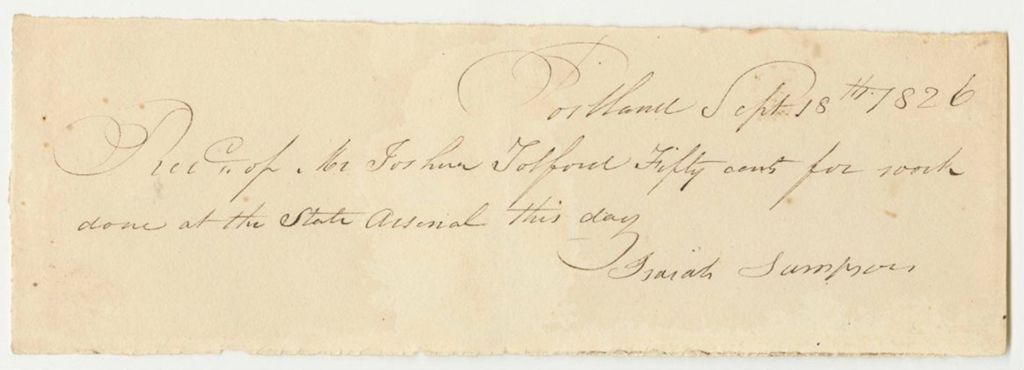 Portland Sept. 18th. 1826
Recd. of Mr Joshua Tolford Fifty cents for work
done at the State Arsenal this day
Isaiah Sampson